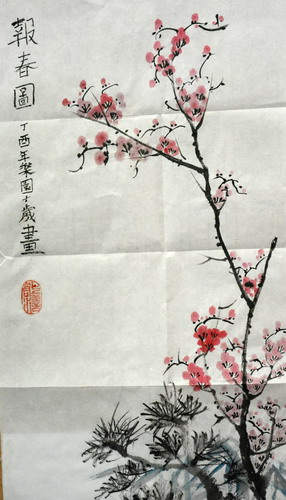 報春圖
丁酉年樂園十歲畫